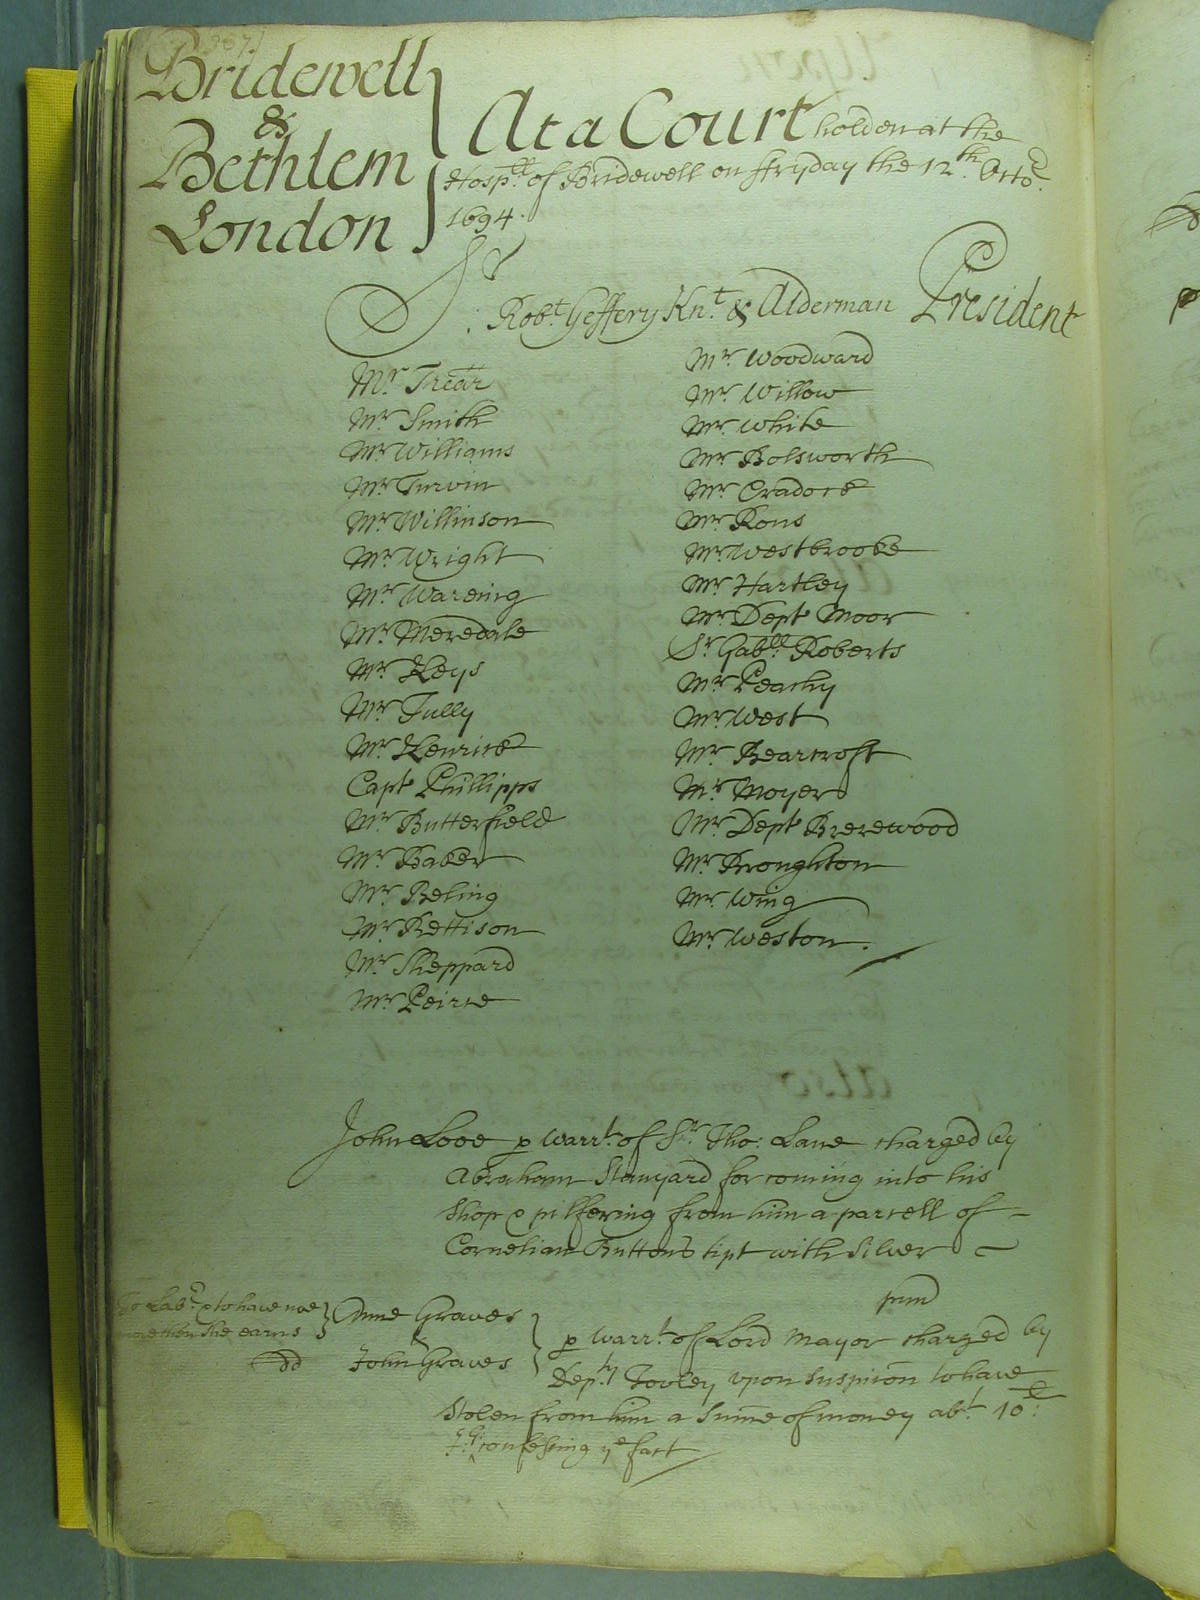 Bridewell
&
Bethlem
London
At a Court holden at the
Hosp.ll of Bridewell on ffryday the 12.th Octo.r
1694.
S.r Rob.t Geffery Kn.t & Alderman President
M.r Trear
M.r Smith
M.r Williams
M.r Turvin
M.r Willinson
M.r Wright
M.r Wareing
M.r Meredale
M.r Keys
M.r Tully
M.r Kenrick
Cap.t Phillipps
M.r Butterfield
M.r Baker
M.r Beling
M.r Kettison
M.r Sheppard
M.r Peirce
M.r Woodward
M.r Willow
M.r White
M.r Bolsworth
M.r Cradock
M.r Rons
M.r Westbrooke
M.r Hartley
M.r Dep.t Moor
S.r Gab.ll Roberts
M.r Peachy
M.r West
M.r Bearcroft
M.r Moyer
M.r Dep.t Brerewood
M.r Broughton
M.r Wing
M.r Weston.
John Love p warr.t of S.r Tho: Lane charged by
Abraham Stanyard for coming into his
Shop & pilfering from him a parcell of
Cornelian Buttons tipt with Silver
pun'd
To Lab.r & to have noe
more then she earns
dd
Anne Graves
John Graves
p warr.t of Lord Mayor charged by
Dep.ty Tovley upon Suspicon to have
Stolen from him a Sume of money ab.t 10.l
confessing y.e fact